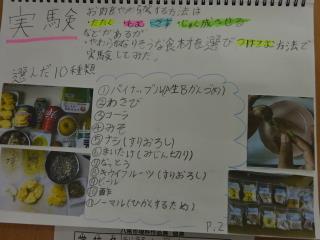 実験
お肉をやわらかくする方法は
たたく もむ さす じゅく成させる
などがあるが
やわらかくなりそうな食材を選びつけこむ方法で
実験してみた。
選んだ10種類
①パイナップル(A生Bかんづめ)
②わさび
③コーラ
④みそ
⑤ナシ(すりおろし)
⑥まいたけ(みじん切り)
⑦なっとう
⑧キウイフルーツ(すりおろし)
⑨ビール
⑪ノーマル(ひかくするため)
P.2